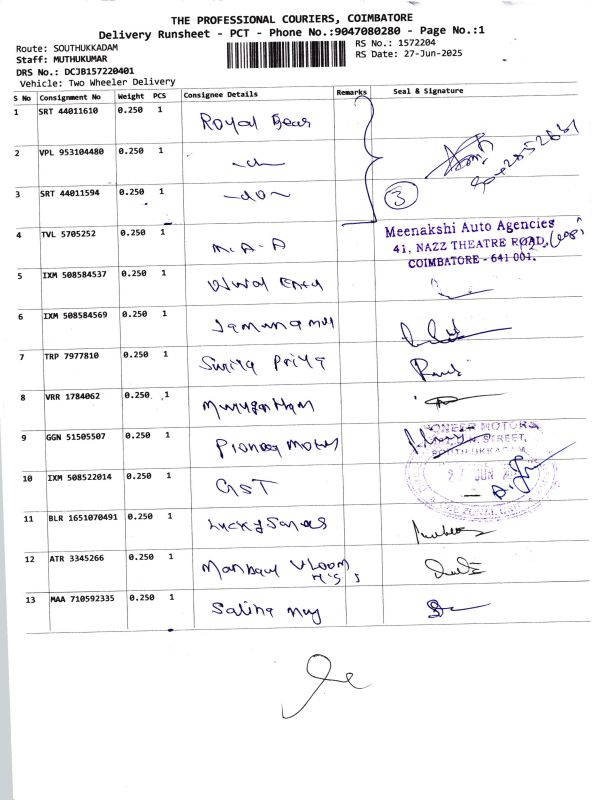 THE PROFESSIONAL COURIERS, COIMBATORE
Delivery Runsheet - PCT - Phone No.:9047080280 - Page No.:1
Route: SOUTHUKKADAM
RS No.: 1572204
Staff: MUTHUKUMAR
RS Date: 27-Jun-2025
DRS No.: DCJB157220401
Vehicle: Two Wheeler Delivery
S No Consignment No Weight PCS Consignee Details Remarks Seal & Signature
1 SRT 44011610 0.250 1 Royal Bear
2 VPL 953104480 0.250 1
3 SRT 44011594 0.250 1 -do- 3
4 TVL 5705252 0.250 1 M.A.A
Meenakshi Auto Agencies
41, NAZZ THEATRE ROAD,
COIMBATORE - 641 001.
5 IXM 508584537 0.250 1
6 IXM 508584569 0.250 1
7 TRP 7977810 0.250 1 Suriya Priya
8 VRR 1784062 0.250 1
9 GGN 51505507 0.250 1 Pioneer Motors
PIONEER MOTORS
STREET,
SOUTH UKKADAM
27 JUN
10 IXM 508522014 0.250 1 GST
11 BLR 1651070491 0.250 1 Lucky
12 ATR 3345266 0.250 1
13 MAA 710592335 0.250 1 Salina